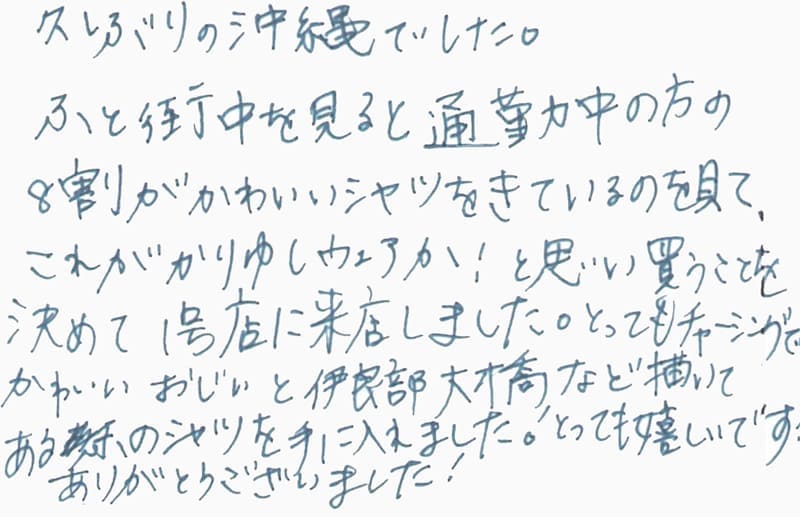 久しぶりの沖縄でした。
ふと街中を見ると通勤中の方の
8割がかわいいシャツをきているのを見て、
これがかりゆしウェアか！と思い買うことを
決めて1号店に来店しました。とってもチャーミングで
かわいいおじいと伊良部大橋など描いて
あるのシャツを手に入れました。とっても嬉しいです
ありがとうございました！